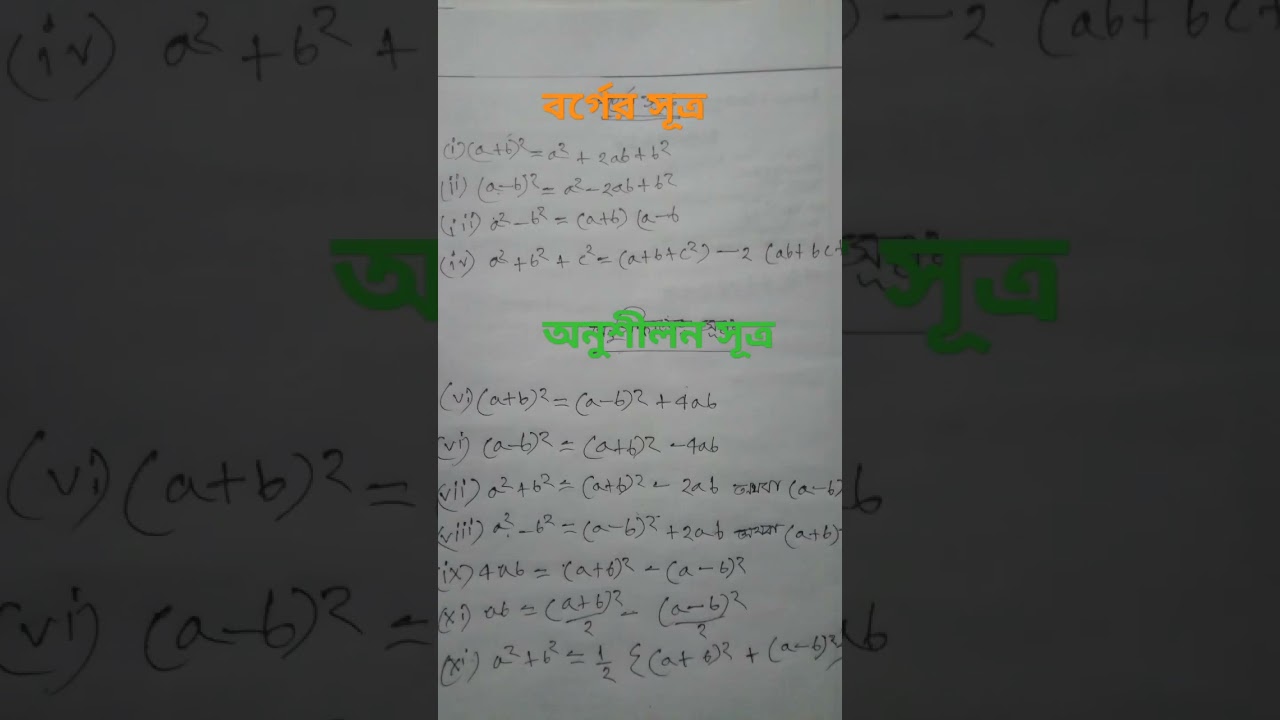 বর্গের সূত্র
(i) (a+b)² = a² + 2ab + b²
(ii) (a-b)² = a² - 2ab + b²
(iii) a² - b² = (a+b) (a-b
(iv) a² + b² + c² = (a+b+c²) - 2 (ab+bc+
অনুশীলন সূত্র
(vi) (a+b)² = (a-b)² + 4ab
(vi) (a-b)² = (a+b)² - 4ab
(vii) a² + b² = (a+b)² - 2ab অথবা (a-b)
(viii) a² - b² = (a-b)² + 2ab অথবা (a+b)
(ix) 4ab = (a+b)² - (a-b)²
(xi) ab = (a+b)²/2 - (a-b)²/2
(xi) a² + b² = 1/2 {(a+b)² + (a-b)²